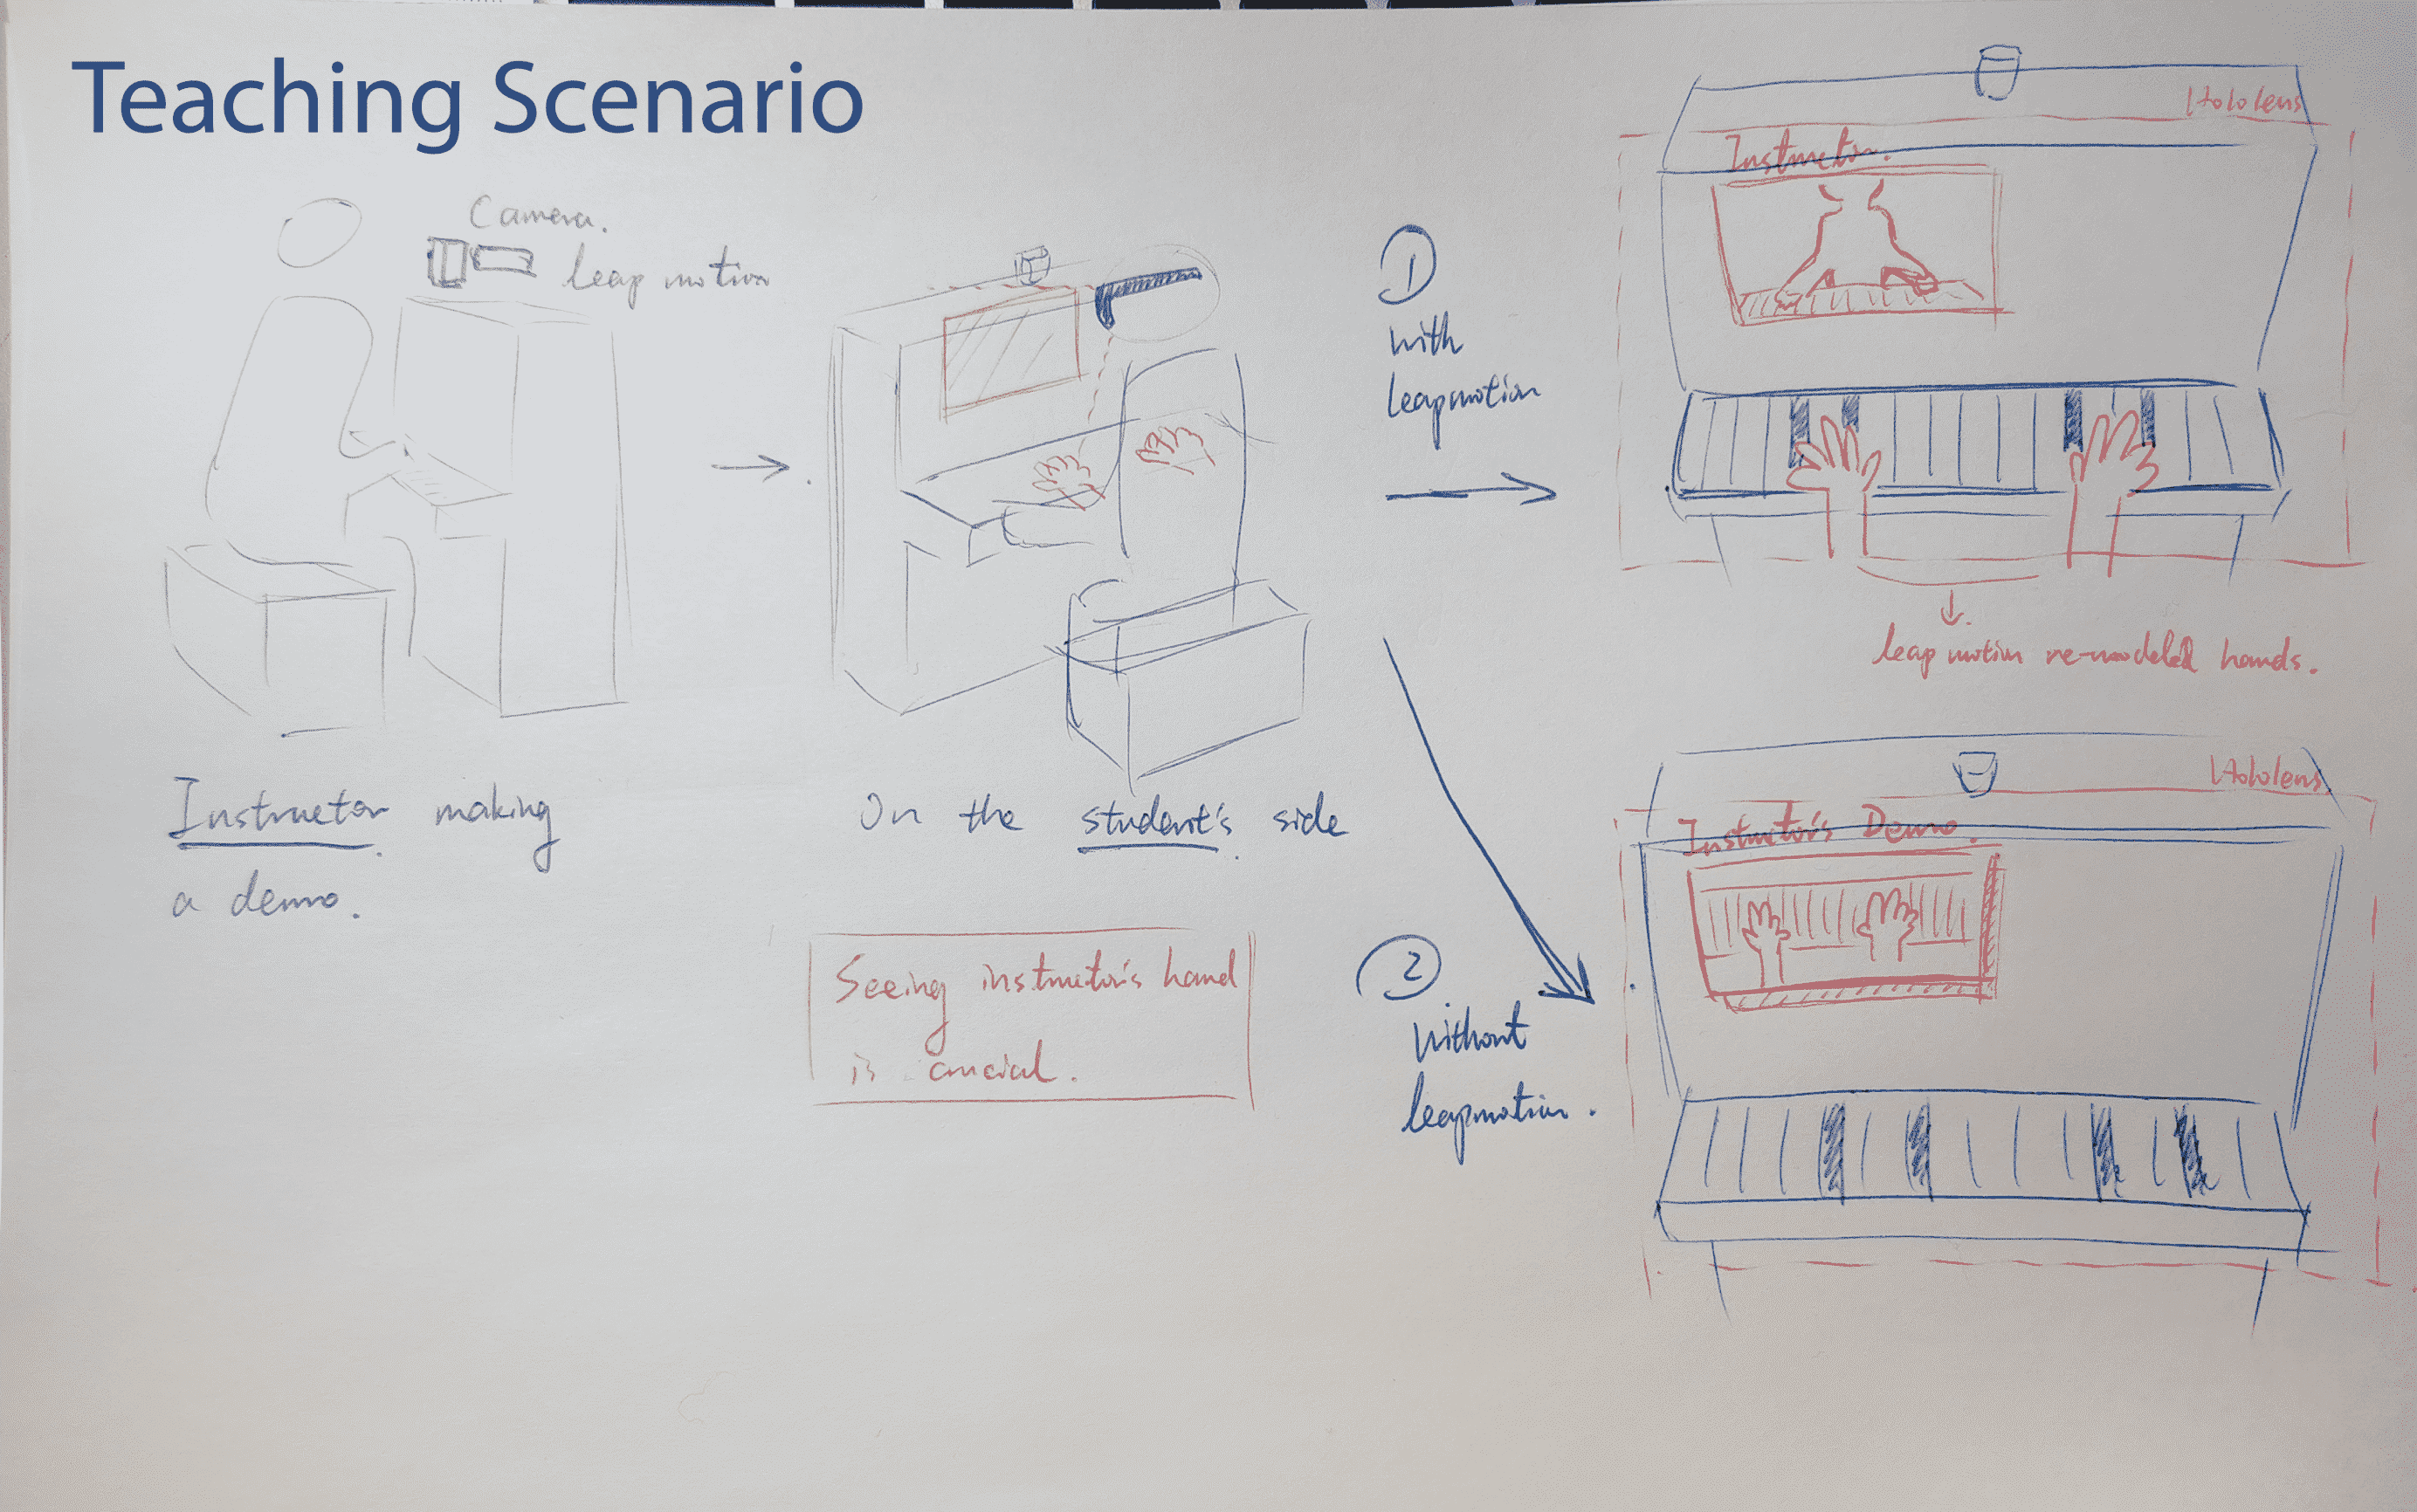 Teaching Scenario
Camera.
leap motion
Instructor making
a demo.
On the student's side
Seeing instructor's hand
is crucial.
1
with
leapmotion
Hololens
Instructor.
leap motion re-modeled hands.
2
Without
leapmotion.
Hololens
Instructor's Demo.